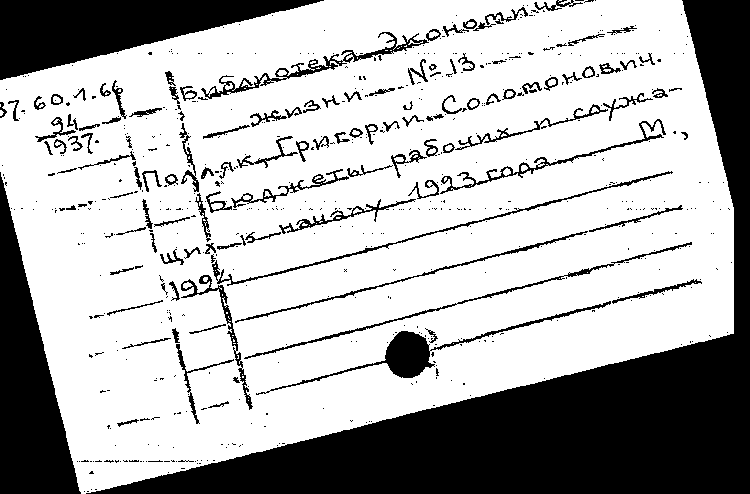 Библиотека „Экономичес
37.60.1.66
жизни" № 13.
94
1937.
Поляк, Григорий Соломонович.
Бюджеты рабочих и служа-
щих к началу 1923 года М.,
1924